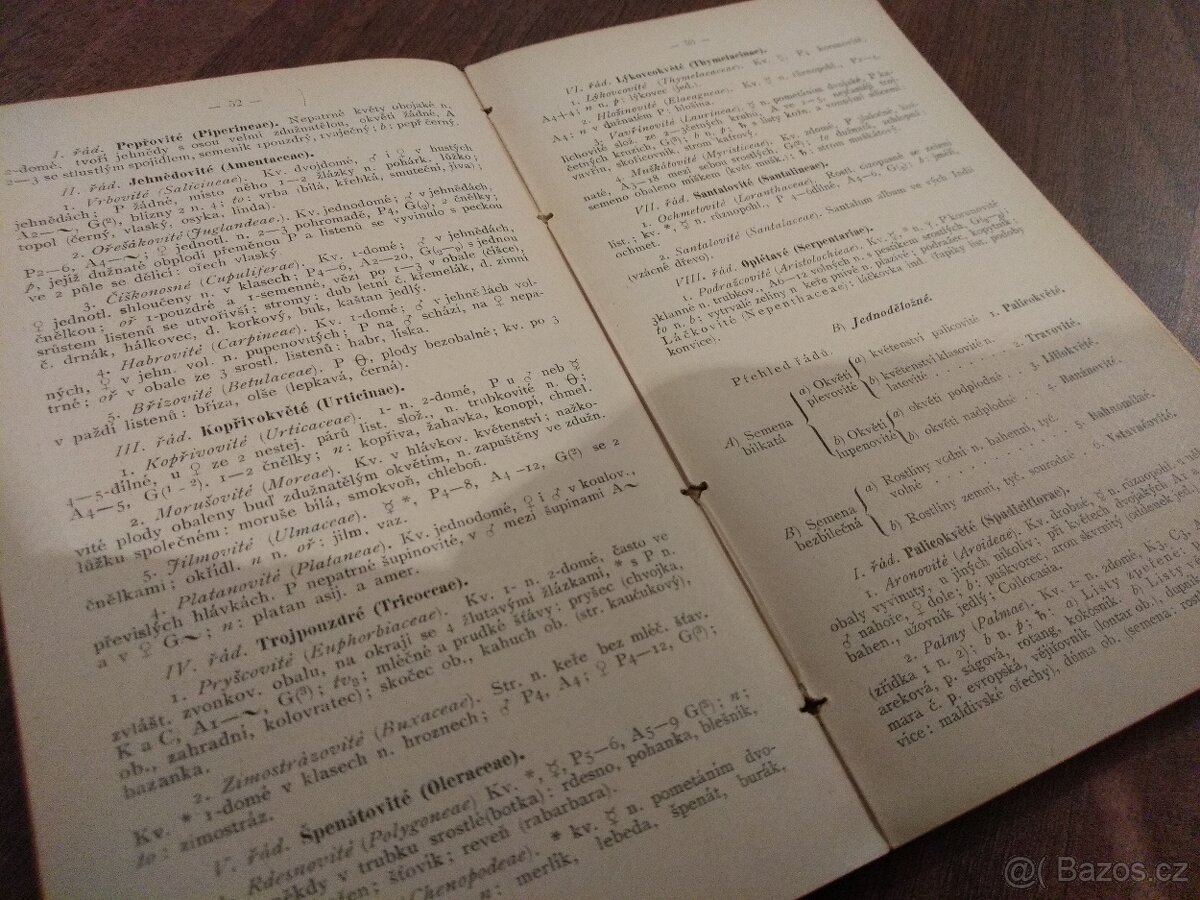 — 52 —
I. řád. Pepřovité (Piperineae). Nepatrné květy obojaké n.
2-domé. tvoří jehnědy s osou velmi zdužnatělou, okvětí žádné, A
2—3 se stlustlým spojidlem, semeník 1pouzdrý, 1vaječný; b: pepř černý.
II. řád. Jehnědovité (Amentaceae).
1. Vrbovité (Salicineae). Kv. dvojdomé, ♂ i ♀ v hustých
jehnědách; P žádné, místo něho 1—2 žlázky n. pohárk. lůžko;
A2—~, G(2), blizny 2 n. 4; to: vrba (bílá, křehká, smuteční, jíva);
topol (černý, vlaský, osyka, linda).
2. Ořešákovité (Juglandeae.). Kv. jednodomé: ♂ v jehnědách,
P2—6, A4—~; ♀ jednotl. n. 2—3 pohromadě, P4, G(2), 2 čnělky;
p, jejíž dužnaté obplodí přeměnou P a listenů se vyvinulo s peckou
ve 2 půle se dělící: ořech vlaský
3. Číškonosné (Cupuliferae). Kv. 1-domé; ♂ v jehnědách,
♀ jednotl. shloučeny n. v klasech; P4—6, A2—20, G(3—9) s jednou
čnělkou; oř 1-pouzdré a 1-semenné, vězí po 1—3 v obale (číšce),
srůstem listenů se utvořivší; stromy: dub letní č. křemelák, d. zimní
č. drnák, hálkovec, d. korkový, buk, kaštan jedlý.
4. Habrovité (Carpineae). Kv. 1-domé, ♂ v jehnědě vol-
ných, ♀ v jehn. vol. n. pupenovitých; P na ♂ schází, na ♀ nepa-
trné; oř v obale ze 3 srostl. listenů: habr, líska.
5. Břízovité (Betulaceae). P Ө, plody bezobalné; kv. po 3
v paždí listenů: bříza, olše (lepkavá, černá).
III. řád. Kopřivokvěté (Urticinae).
1. Kopřivovité (Urticaceae). 1- n. 2-domé, P u ♂ neb ☿
4—5-dílné, u ♀ ze 2 nestej. párů list. slož., n. trubkovité n. Ө;
A4—5, G(1 - 2). 1—2 čnělky; n: kopřiva, žahavka, konopí, chmel.
2. Morušovité (Moreae). Kv. v hlávkov. květenství; nažko-
vité plody obaleny buď zdužnatělým okvětím, n. zapuštěny ve zdužn.
lůžku společném: moruše bílá, smokvoň, chleboň.
3. Jilmovité (Ulmaceae). ☿ *, P4—8, A4 —12, G(2) se 2
čnělkami; okřídl. n n. oř: jilm, vaz.
4. Platanovité (Plataneae). Kv. jednodomé, ♀ i ♂ v koulov.,
převislých hlávkách. P nepatrné šupinovité, v ♂ mezi šupinami A~
a v ♀ G~; n: platan asij. a amer.
IV. řád. Trojpouzdré (Tricoccae).
1. Pryšcovité (Euphorbiaceae). Kv. 1- n. 2-domé, často ve
zvlášt. zvonkov. obalu, na okraji se 4 žlutavými žlázkami, * s P n.
K a C, A1—~, G(3); tv3; mléčné a prudké šťávy: pryšec (chvojka,
ob., zahradní, kolovratec); skočec ob., kabuch ob. (str. kaučukový),
bazanka.
2. Zimostrázovité (Buxaceae). Str. n. keře bez mléč. šťav.
Kv. * 1-domé v klasech n. hroznech; ♂ P4, A4; ♀ P4—12, G(3);
to: zimostráz.
V. řád. Špenátovité (Oleraceae).
Rdesnovité (Polygoneae) Kv. *, ☿, P5—6, A5—9 G(3); n;
někdy v trubku srostlé(botka): rdesno, pohanka, blešník,
šťovík; reveň (rabarbara).
(Chenopodeae). * kv. ☿ n. pometáním dvo-
n: merlík, lebeda, špenát, burák,
VI. řád. Lýkovcokvěté (Thymelacinae).
1. Lýkovcovité (Thymelaeaceae). Kv. ☿, P4 korunovité,
A4+4; n n. p: lýkovec (jed.).
2. Hlošinovité (Elaeagneae). Kv. ☿ n. různopohl., P2—4,
A4; n v dužnatém P: hlošina.
3. Vavřínovité (Laurineae). ☿ n. pometáním dvojaké, P ka-
lichovité slož. ze 2—3četných kruhů, A ve 1—5, nejčastěji troj-
četných kruzích, G(3); b n. p; ħ s listy kož. a vonnými silicemi:
vavřín, skořicovník, strom kafrový.
4. Muškátovité (Myristiceae). Kv. 2domé, P dužnatě list-
naté, A3—18 mezi sebou srostlých, G(2); to dužnatá, odchlípi
semeno obaleno míškem (květ mušk.); ħ: strom muškátový.
VII. řád. Santalovité (Santalineae).
1. Ochmetovité (Loranthaceae). Rostl. cizopasné se zelení
list.; kv. *, ☿ n. různopohl., P 4—6dílné, A4—6, G(3); b; jmelí,
ochmet.
2. Santalovité (Santalaceae). Santalum album ve vých Indii
(vzácné dřevo).
VIII. řád. Oplétavé (Serpentariae).
1. Podražcovité (Aristolochieae). Kv. ☿ * n. z, P korunovité
3klanné n. trubkov., A6-12 volných n. s pestíkem srostlých G(3—6);
to n. b; vytrvalé zeliny n keře přímé n. plazivé: podražec, kopytník;
Láčkovité (Nepenthaceae); láčkovka ind. (řapíky listů podoby
konvice).
B) Jednoděložné.
Přehled řádů.
A) Semena bílkatá
a) Okvětí plevovité
a) květenství palicovité . 1. Palicokvěté.
b) květenství klasovité n. latovité . . . . . 2. Travovité.
b) Okvětí lupenovité
a) okvětí podplodné . . 3. Liliokvěté.
b) okvětí nadplodné . . 4. Banánovité.
B) Semena bezbílečná
a) Rostliny vodní n. bahenní, tyč. volné . . . . 5. Bahnomilné.
b) Rostliny zemní, tyč. sourodné . 6. Vstavačovité.
I. řád. Palicokvěté (Spadiciflorae).
1. Aronovité (Aroideae). Kv. drobné, ☿ n. různopohl., u
obaly vyvinuty, n jiných nikoliv; při květech dvojakých Ar
♂ nahoře, ♀ dole; b: puškvorec, aron skvrnitý (oddenek jedl
bahen, užovník jedlý; Coilocasia.
2. Palmy (Palmae). Kv. 1- n. 2domé, K3, C3,
(zřídka 1 n. 2); b n. p; ħ. a) Listy zpeřené:
areková, p. ságová, rotang, kokosník. b) Listy
mara č. p. evropská, vějířovník (lontar ob.), dupa
více: maldivské ořechy), dóma ob. (semena: ros
@( Bazos.cz